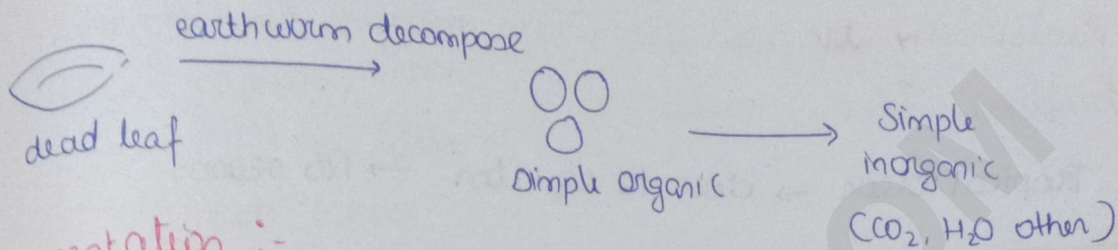 earthworm decompose
dead leaf
Simple organic
Simple
inorganic
(CO₂, H₂O other)